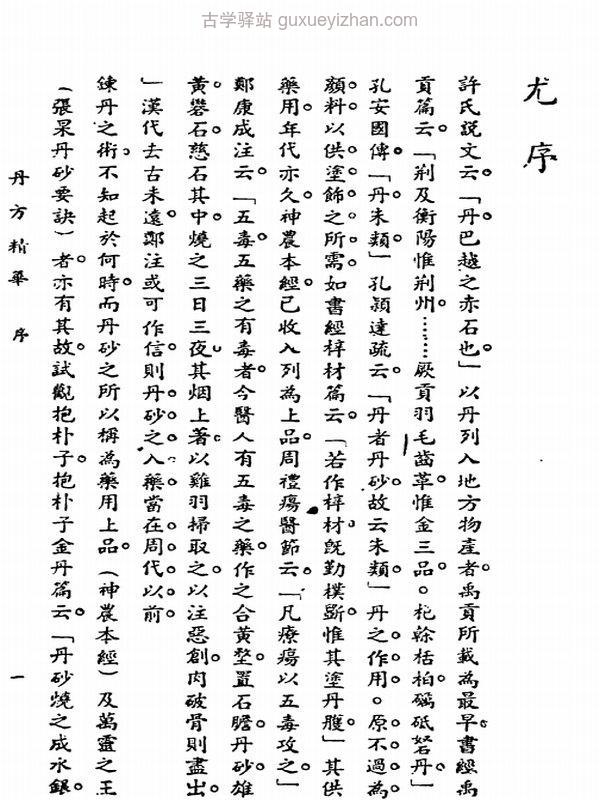 古学驿站 guxueyizhan.com
尤序
許氏說文云。「丹。巴越之赤石也。」以丹列入地方物產者。禹貢所載為最早。書經禹
貢篇云。「荆及衡陽惟荆州。……厥貢羽毛齒革。惟金三品。杶榦栝柏。礪砥砮丹。」
孔安國傳。「丹。朱類。」孔潁達疏云。「丹者丹砂。故云朱類」丹之作用。原不過為
顏料。以供塗飾之所需。如書經梓材篇云。「若作梓材。旣勤樸斲。惟其塗丹雘」其供
藥用。年代亦久。神農本經。已收入列為上品。周禮瘍醫節云。「凡療瘍以五毒攻之。」
鄭康成注云。「五毒。五藥之有毒者。今醫人有五毒之藥。作之合黃堥。置石膽。丹砂。雄
黃。礬石。慈石其中。燒之三日三夜。其烟上著。以雞羽掃取之。以注惡創。肉破骨則盡出。
」漢代去古未遠。鄭注或可作信。則丹砂之入藥。當在周代以前。
煉丹之術。不知起於何時。而丹砂之所以稱為藥用上品。(神農本經)及萬靈之王
(張杲丹砂要訣)者。亦有其故。試觀抱朴子。抱朴子金丹篇云。「丹砂燒之成水銀。
丹方精華 序
一